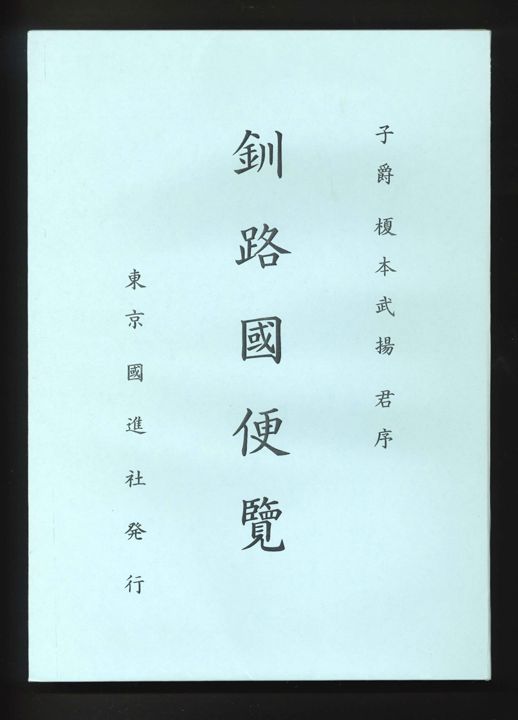 子爵 榎本武揚 君序
釧路國便覽
東京 國進社発行